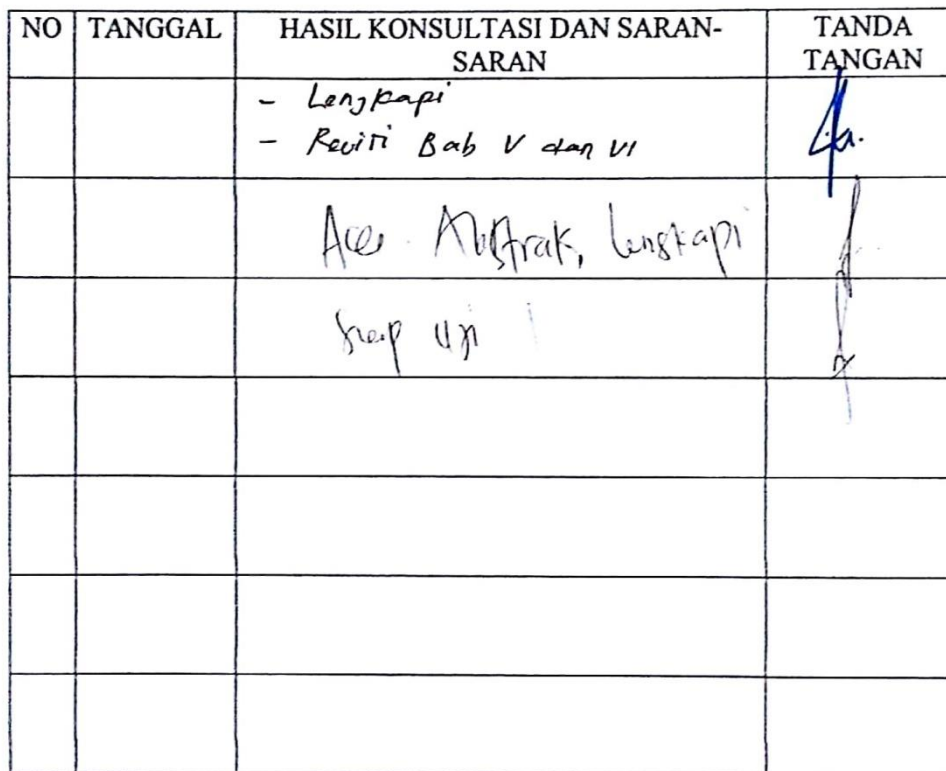 NO TANGGAL HASIL KONSULTASI DAN SARAN- TANDA
SARAN TANGAN
- Lengkapi
- Revisi Bab V dan VI
Acc Abstrak, lengkapi
Siap Uji